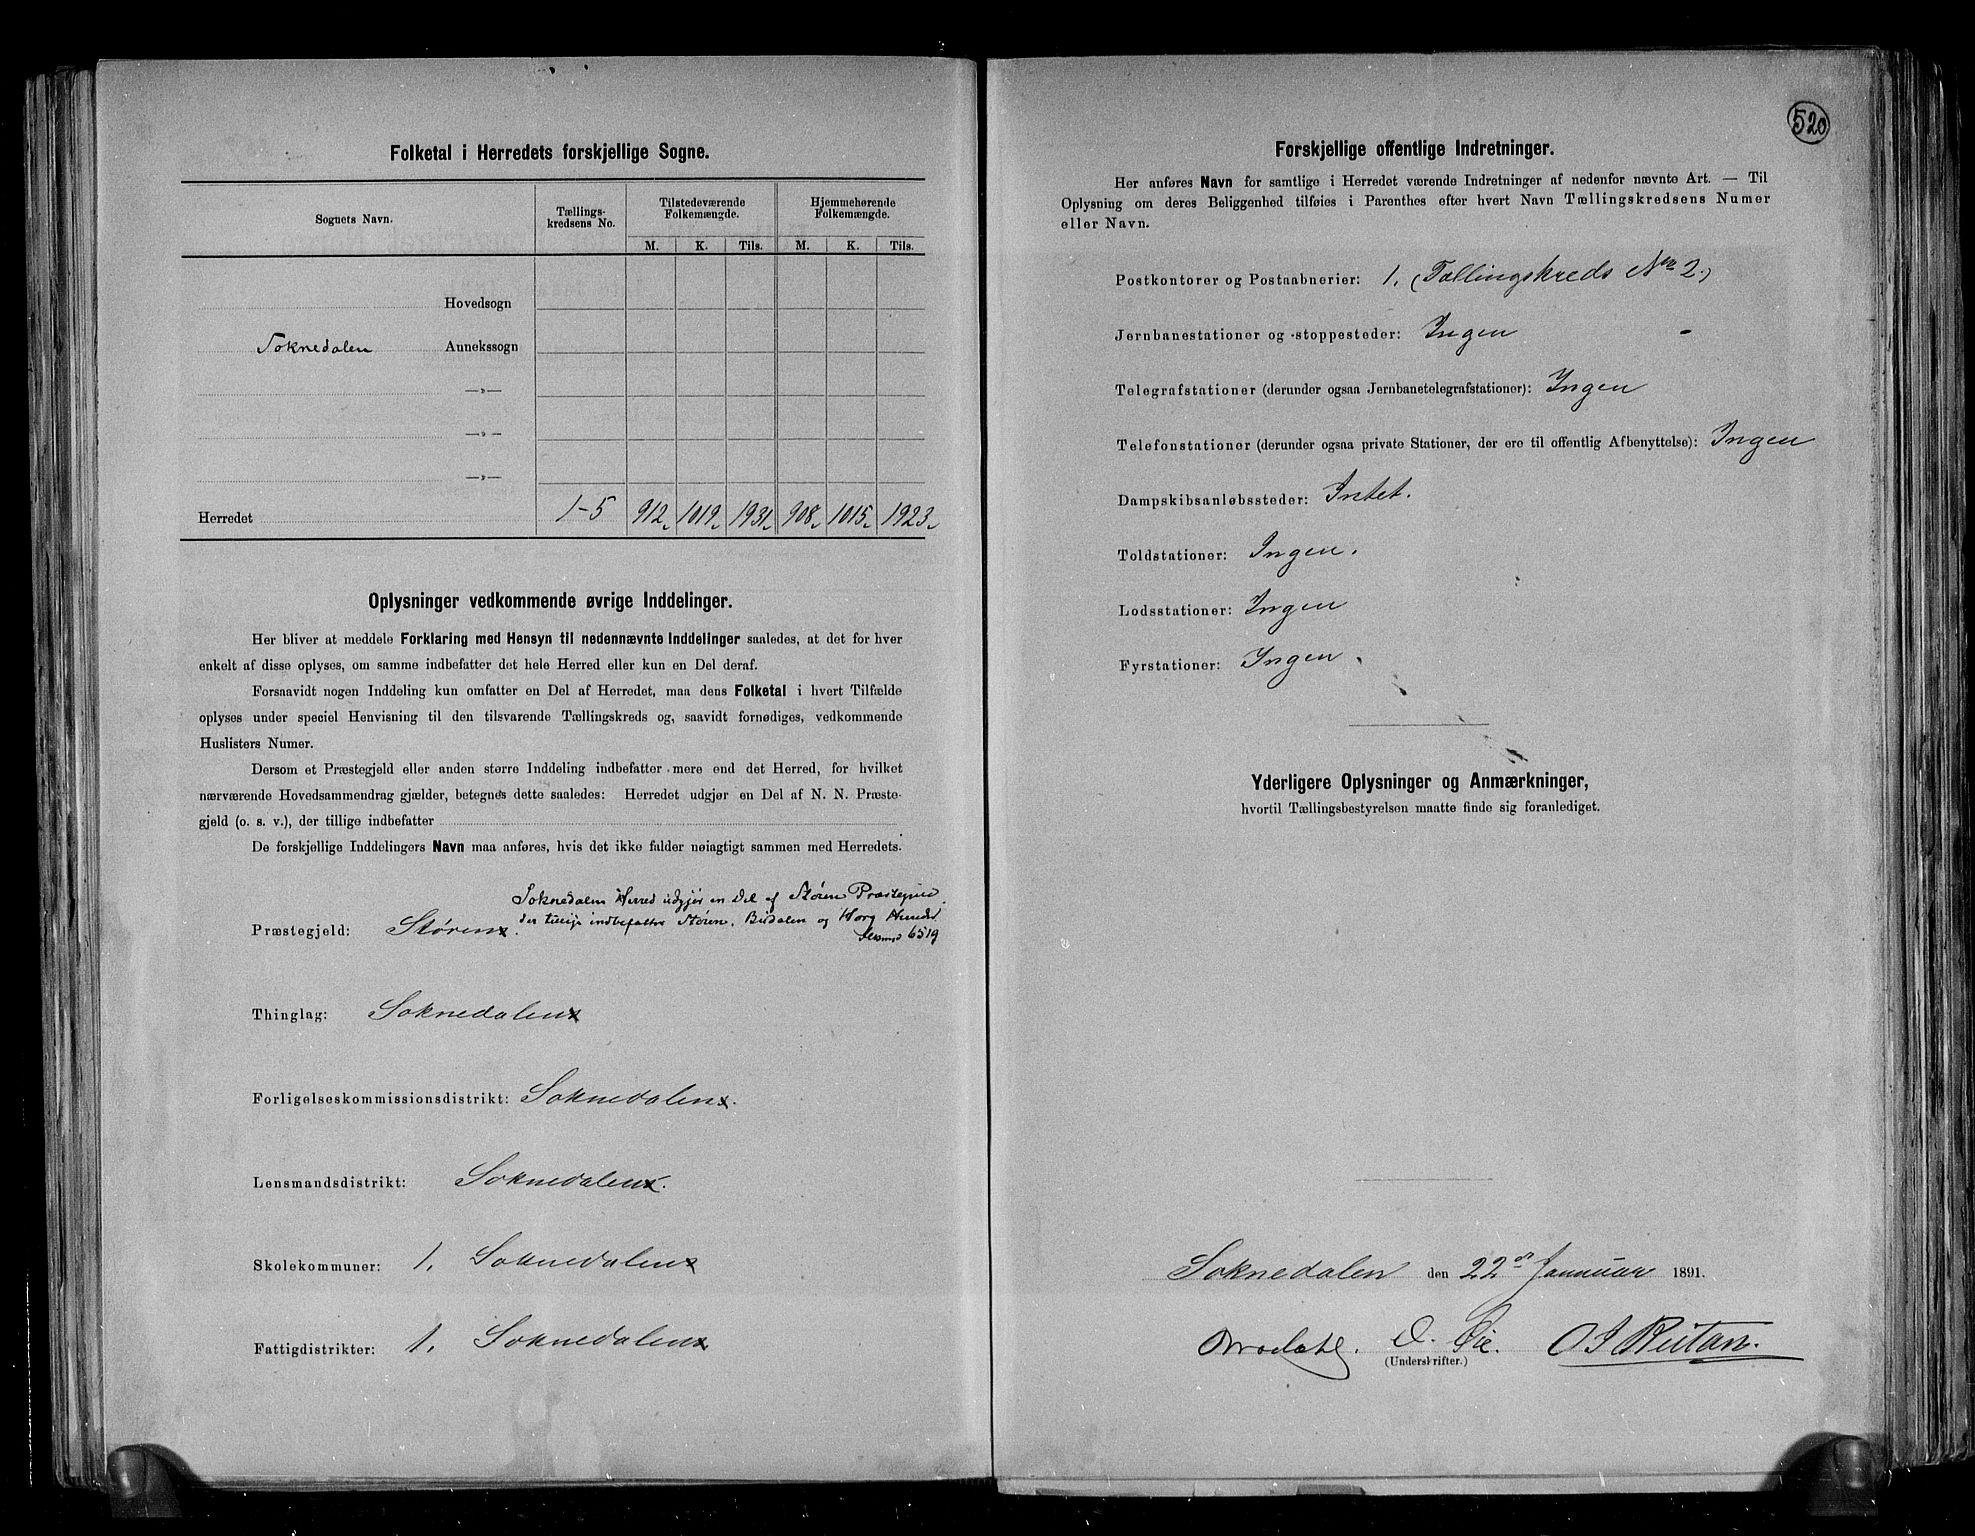 Folketal i Herredets forskjellige Sogne.
Sognets Navn.
Tællings-
kredsens No.
Tilstedeværende
Folkemængde.
Hjemmehørende
Folkemængde.
M. K. Tils. M. K. Tils.
Hovedsogn
Soknedalen Annekssogn
—»—
—»—
—»—
Herredet 1-5 912 1019 1931 908 1015 1923
Oplysninger vedkommende øvrige Inddelinger.
Her bliver at meddele Forklaring med Hensyn til nedennævnte Inddelinger saaledes, at det for hver
enkelt af disse oplyses, om samme indbefatter det hele Herred eller kun en Del deraf.
Forsaavidt nogen Inddeling kun omfatter en Del af Herredet, maa dens Folketal i hvert Tilfælde
oplyses under speciel Henvisning til den tilsvarende Tællingskreds og, saavidt fornødiges, vedkommende
Huslisters Numer.
Dersom et Præstegjeld eller anden større Inddeling indbefatter mere end det Herred, for hvilket
nærværende Hovedsammendrag gjælder, betegnes dette saaledes: Herredet udgjør en Del af N. N. Præste-
gjeld (o. s. v.), der tillige indbefatter
De forskjellige Inddelingers Navn maa anføres, hvis det ikke falder nøiagtigt sammen med Herredets.
Soknedalen Herred udgjør en Del af Støren Præstegjeld
der tillige indbefatter Støren, Budalen og Horg
6519
Præstegjeld: Støren
Thinglag: Soknedalen
Forligelseskommissionsdistrikt: Soknedalen
Lensmandsdistrikt: Soknedalen
Skolekommuner: 1. Soknedalen
Fattigdistrikter: 1. Soknedalen
520
Forskjellige offentlige Indretninger.
Her anføres Navn for samtlige i Herredet værende Indretninger af nedenfor nævnte Art. — Til
Oplysning om deres Beliggenhed tilføies i Parenthes efter hvert Navn Tællingskredsens Numer
eller Navn.
Postkontorer og Postaabnerier: 1. (Tællingskreds No 2.)
Jernbanestationer og -stoppesteder: Ingen
Telegrafstationer (derunder ogsaa Jernbanetelegrafstationer): Ingen
Telefonstationer (derunder ogsaa private Stationer, der ere til offentlig Afbenyttelse): Ingen
Dampskibsanløbssteder: Intet.
Toldstationer: Ingen.
Lodsstationer: Ingen
Fyrstationer: Ingen.
Yderligere Oplysninger og Anmærkninger,
hvortil Tællingsbestyrelsen maatte finde sig foranlediget.
Soknedalen den 22d Januar 1891.
O. Øie. O J Rütan.
(Underskrifter.)